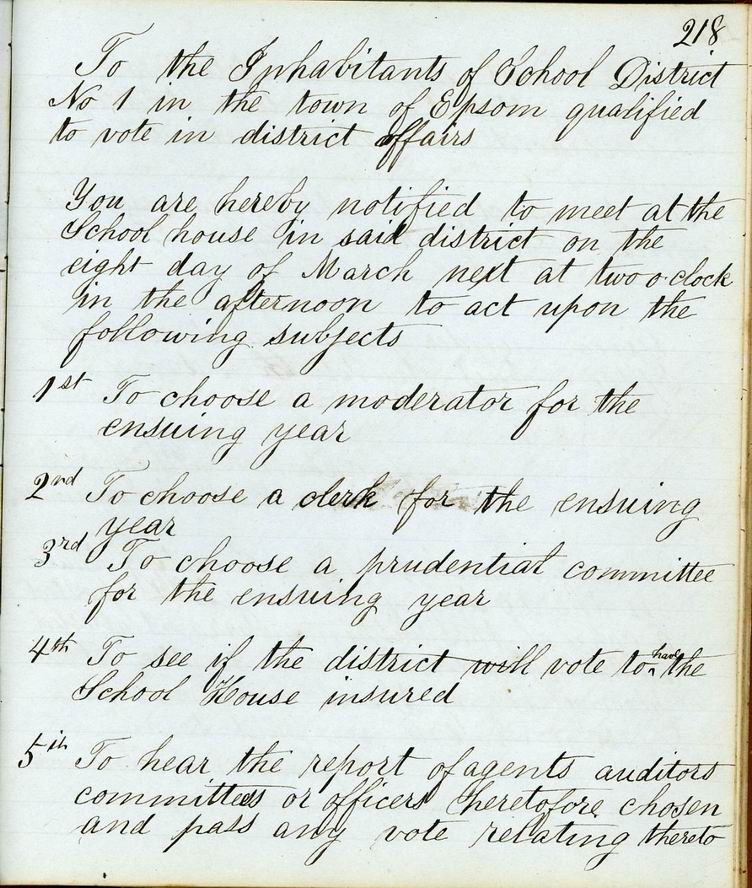 218
To the Inhabitants of School District
No 1 in the town of Epsom qualified
to vote in district affairs
You are hereby notified to meet at the
School house in said district on the
eight day of March next at two o'clock
in the afternoon to act upon the
following subjects
1st To choose a moderator for the
ensuing year
2nd To choose a clerk for the ensuing
year
3rd To choose a prudential committee
for the ensuing year
4th To see if the district will vote to have the
School House insured
5th To hear the report of agents auditors
committees or officers heretofore chosen
and pass any vote relating thereto